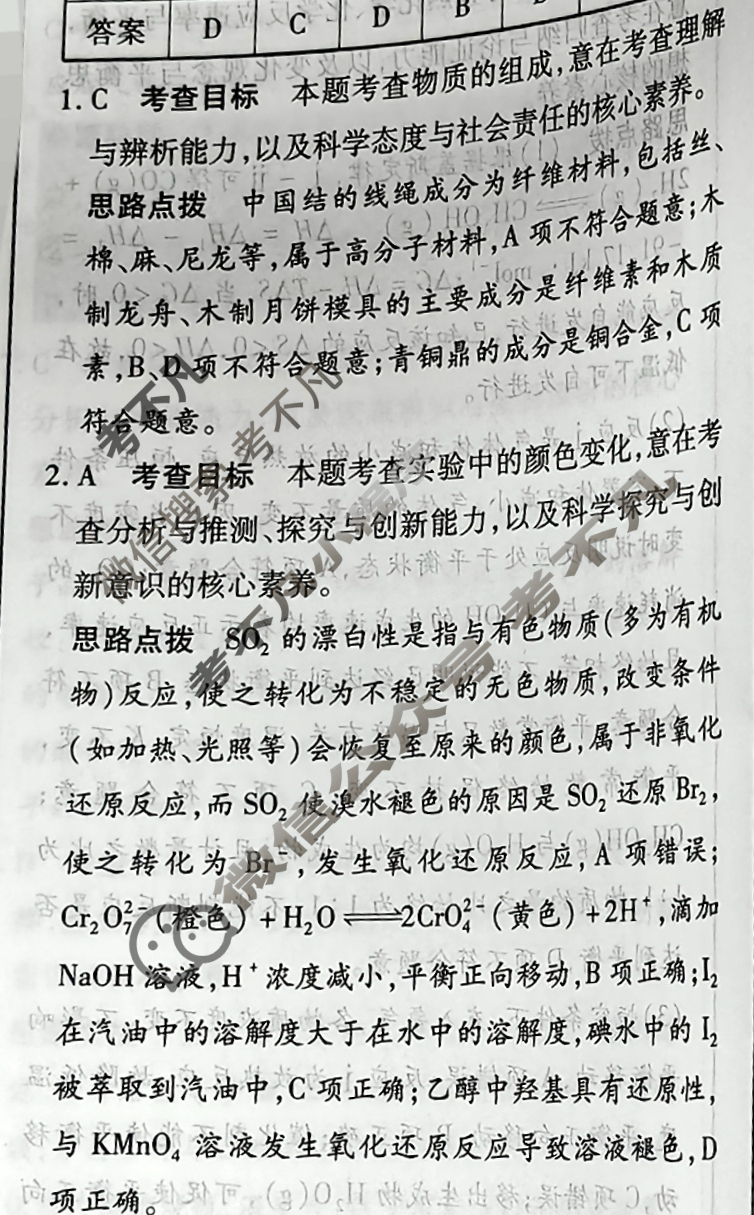 答案 D C D B
1. C 考查目标 本题考查物质的组成,意在考查理解
与辨析能力,以及科学态度与社会责任的核心素养。
思路点拨 中国结的线绳成分为纤维材料,包括丝、
棉、麻、尼龙等,属于高分子材料,A 项不符合题意;木
制龙舟、木制月饼模具的主要成分是纤维素和木质
素,B、D 项不符合题意;青铜鼎的成分是铜合金,C 项
符合题意。
2. A 考查目标 本题考查实验中的颜色变化,意在考
查分析与推测、探究与创新能力,以及科学探究与创
新意识的核心素养。
思路点拨 SO₂ 的漂白性是指与有色物质(多为有机
物)反应,使之转化为不稳定的无色物质,改变条件
(如加热、光照等)会恢复至原来的颜色,属于非氧化
还原反应,而 SO₂ 使溴水褪色的原因是 SO₂ 还原 Br₂,
使之转化为 Br⁻,发生氧化还原反应,A 项错误;
Cr₂O₇²⁻(橙色)+H₂O⇌2CrO₄²⁻(黄色)+2H⁺,滴加
NaOH 溶液,H⁺浓度减小,平衡正向移动,B 项正确;I₂
在汽油中的溶解度大于在水中的溶解度,碘水中的 I₂
被萃取到汽油中,C 项正确;乙醇中羟基具有还原性,
与 KMnO₄ 溶液发生氧化还原反应导致溶液褪色,D
项正确。
考不凡
微信搜索 考不凡
考不凡小程序
微信公众号 考不凡